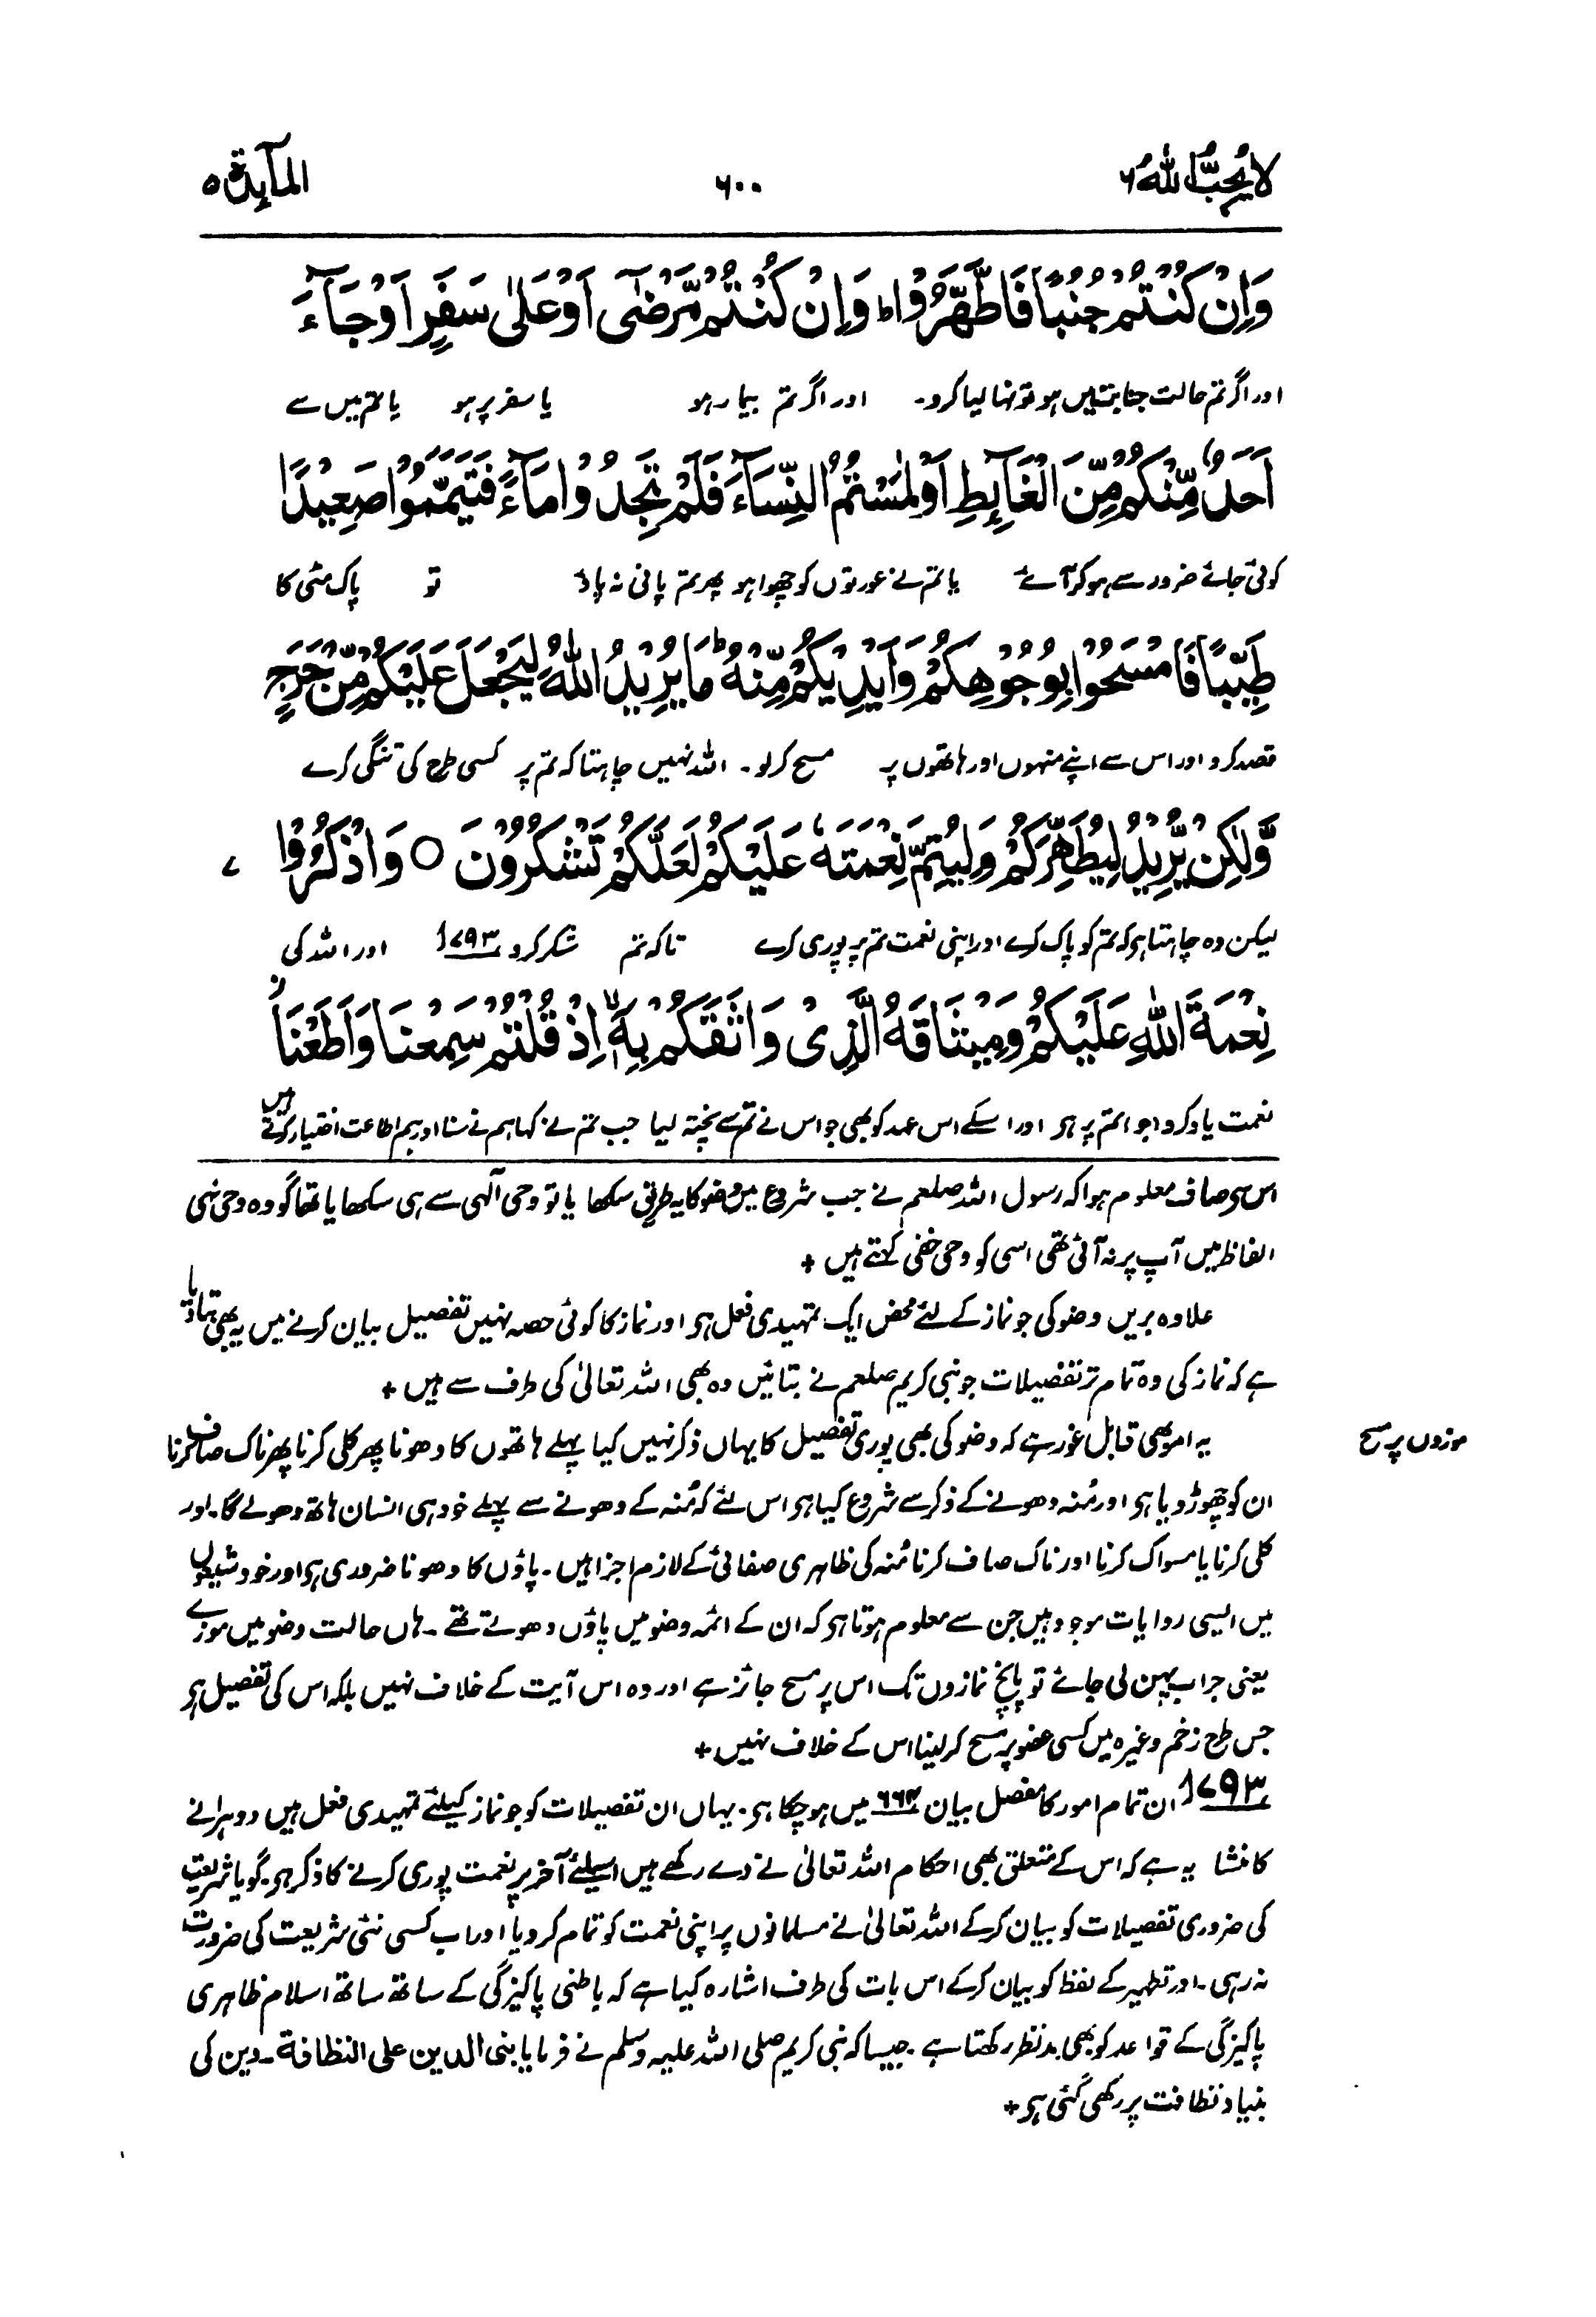 لا یحب اللہ ۶
۶۰۰
المآئدۃ ۵
وَاِنْ كُنْتُمْ جُنُبًا فَاطَّهَّرُوْا ؕ وَاِنْ كُنْتُمْ مَّرْضٰٓى اَوْ عَلٰى سَفَرٍ اَوْ جَآءَ
اور اگر تم حالت جنابت میں ہو تو نہا لیا کرو۔ اور اگر تم بیمار ہو یا سفر پر ہو یا تم میں سے
اَحَدٌ مِّنْكُمْ مِّنَ الْغَآىِٕطِ اَوْ لٰمَسْتُمُ النِّسَآءَ فَلَمْ تَجِدُوْا مَآءً فَتَيَمَّمُوْا صَعِيْدًا
کوئی جائے ضرور سے ہو کر آئے یا تم نے عورتوں کو چھوا ہو پھر تم پانی نہ پاؤ تو پاک مٹی کا
طَيِّبًا فَامْسَحُوْا بِوُجُوْهِكُمْ وَاَيْدِيْكُمْ مِّنْهُ ؕ مَا يُرِيْدُ اللّٰهُ لِيَجْعَلَ عَلَيْكُمْ مِّنْ حَرَجٍ
قصد کرو اور اس سے اپنے منہوں اور ہاتھوں پر مسح کر لو۔ اللہ نہیں چاہتا کہ تم پر کسی طرح کی تنگی کرے
وَّلٰكِنْ يُّرِيْدُ لِيُطَهِّرَكُمْ وَلِيُتِمَّ نِعْمَتَهٗ عَلَيْكُمْ لَعَلَّكُمْ تَشْكُرُوْنَ ○ وَاذْكُرُوْا ۷
لیکن وہ چاہتا ہو کہ تم کو پاک کرے اور اپنی نعمت تم پر پوری کرے تاکہ تم شکر کرو ۷۹۳ اور اللہ کی
نِعْمَةَ اللّٰهِ عَلَيْكُمْ وَمِيْثَاقَهُ الَّذِىْ وَاثَقَكُمْ بِهٖٓ ۙ اِذْ قُلْتُمْ سَمِعْنَا وَاَطَعْنَا ۫
نعمت یاد کرو (جو) تم پر ہو اور اسکے اس عہد کو بھی جو اس نے تم سے پختہ لیا جب تم نے کہا ہم نے سنا اور ہم اطاعت اختیار کرتے ہیں
اس سو صاف معلوم ہوا کہ رسول اللہ صلعم نے جب شروع میں وضو کا یہ طریق سکھایا تو وحی آلٰہی سے ہی سکھایا تھا گو وہ وحی نبی
الفاظ میں آپ پر نہ آئی تھی اسی کو وحی خفی کہتے ہیں +
علاوہ بریں وضو کی جو نماز کے لئے محض ایک تمہیدی فعل ہو اور نماز کا کوئی حصہ نہیں تفصیل بیان کرنے میں یہ بھی بتا دیا
ہے کہ نماز کی وہ تمام تر تفصیلات جو نبی کریم صلعم نے بتائیں وہ بھی اللہ تعالیٰ کی طرف سے ہیں +
موزوں پر مسح
یہ امر بھی قابل غور ہے کہ وضو کی بھی پوری تفصیل کا یہاں ذکر نہیں کیا پہلے ہاتھوں کا دھونا پھر کلی کرنا پھر ناک صاف کرنا
ان کو چھوڑ دیا ہو اور مُنہ دھونے کے ذکر سے شروع کیا ہو اس لئے کہ مُنہ کے دھونے سے پہلے خود ہی انسان ہاتھ دھولے گا۔ اور
کلی کرنا یا مسواک کرنا اور ناک صاف کرنا مُنہ کی ظاہری صفائی کے لازم اجزا ہیں۔ پاؤں کا دھونا ضروری ہو اور خود شیعوں
میں ایسی روایات موجود ہیں جن سے معلوم ہوتا ہو کہ ان کے ائمہ وضو میں پاؤں دھوتے تھے۔ ہاں حالت وضو میں موزے
یعنی جراب پہن لی جائے تو پانچ نمازوں تک اس پر مسح جائز ہے اور وہ اس آیت کے خلاف نہیں بلکہ اس کی تفصیل ہو
جس طرح زخم وغیرہ میں کسی عضو پر مسح کر لینا اس کے خلاف نہیں +
۷۹۳ ان تمام امور کا مفصل بیان ۶۶۴ میں ہو چکا ہو۔ یہاں ان تفصیلات کو جو نماز کیلئے تمہیدی فعل ہیں دوہرانے
کا منشا یہ ہے کہ اس کے متعلق بھی احکام اللہ تعالیٰ نے دے رکھے ہیں اسیلئے آخر پر نعمت پوری کرنے کا ذکر ہو۔ گویا شریعت
کی ضروری تفصیلات کو بیان کر کے اللہ تعالیٰ نے مسلمانوں پر اپنی نعمت کو تمام کر دیا اور اب کسی نئی شریعت کی ضرورت
نہ رہی۔ اور تطہیر کے لفظ کو بیان کر کے اس بات کی طرف اشارہ کیا ہے کہ باطنی پاکیزگی کے ساتھ ساتھ اسلام ظاہری
پاکیزگی کے قواعد کو بھی مدنظر رکھتا ہے۔ جیسا کہ نبی کریم صلی اللہ علیہ وسلم نے فرمایا بنی الدین علی النظافة۔ دین کی
بنیاد نظافت پر رکھی گئی ہو +